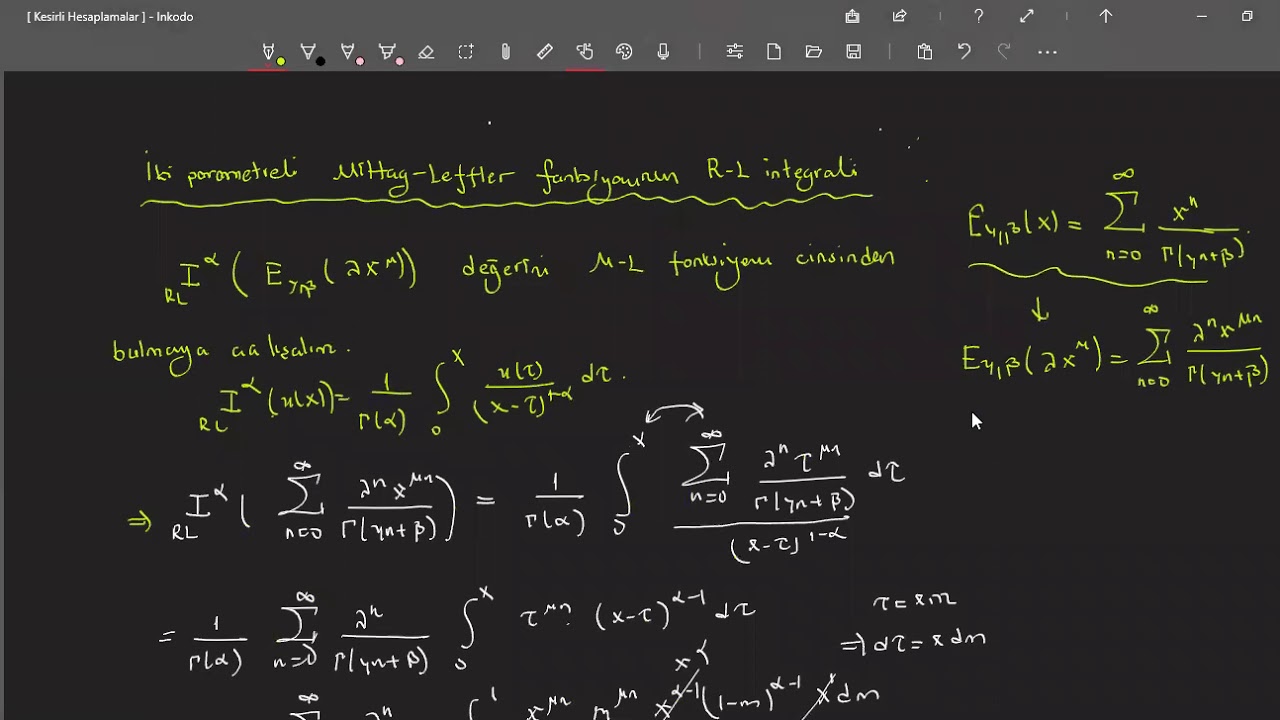 [ Kesirli Hesaplamalar ] - Inkodo
İki parametreli Mittag-Leffler fonksiyonunun R-L integrali
E_{γ,β}(x) = ∑_{n=0}^{∞} x^n / Γ(γn+β).
_{RL}I^α ( E_{γ,β}(λx^μ)) değerini M-L fonksiyonu cinsinden
bulmaya çalışalım.
E_{γ,β}(λx^μ) = ∑_{n=0}^{∞} λ^n x^{μn} / Γ(γn+β)
_{RL}I^α (u(x)) = 1/Γ(α) ∫_0^x u(τ) / (x-τ)^{1-α} dτ.
⇒ _{RL}I^α ( ∑_{n=0}^{∞} λ^n x^{μn} / Γ(γn+β) ) = 1/Γ(α) ∫_0^x ∑_{n=0}^{∞} λ^n τ^{μn} / Γ(γn+β) / (x-τ)^{1-α} dτ
= 1/Γ(α) ∑_{n=0}^{∞} λ^n / Γ(γn+β) ∫_0^x τ^{μn} (x-τ)^{α-1} dτ
τ = xm
⇒ dτ = x dm
∞ λ^n ∫^1 x^{μn} m^{μn} x^{α-1} (1-m)^{α-1} x dm